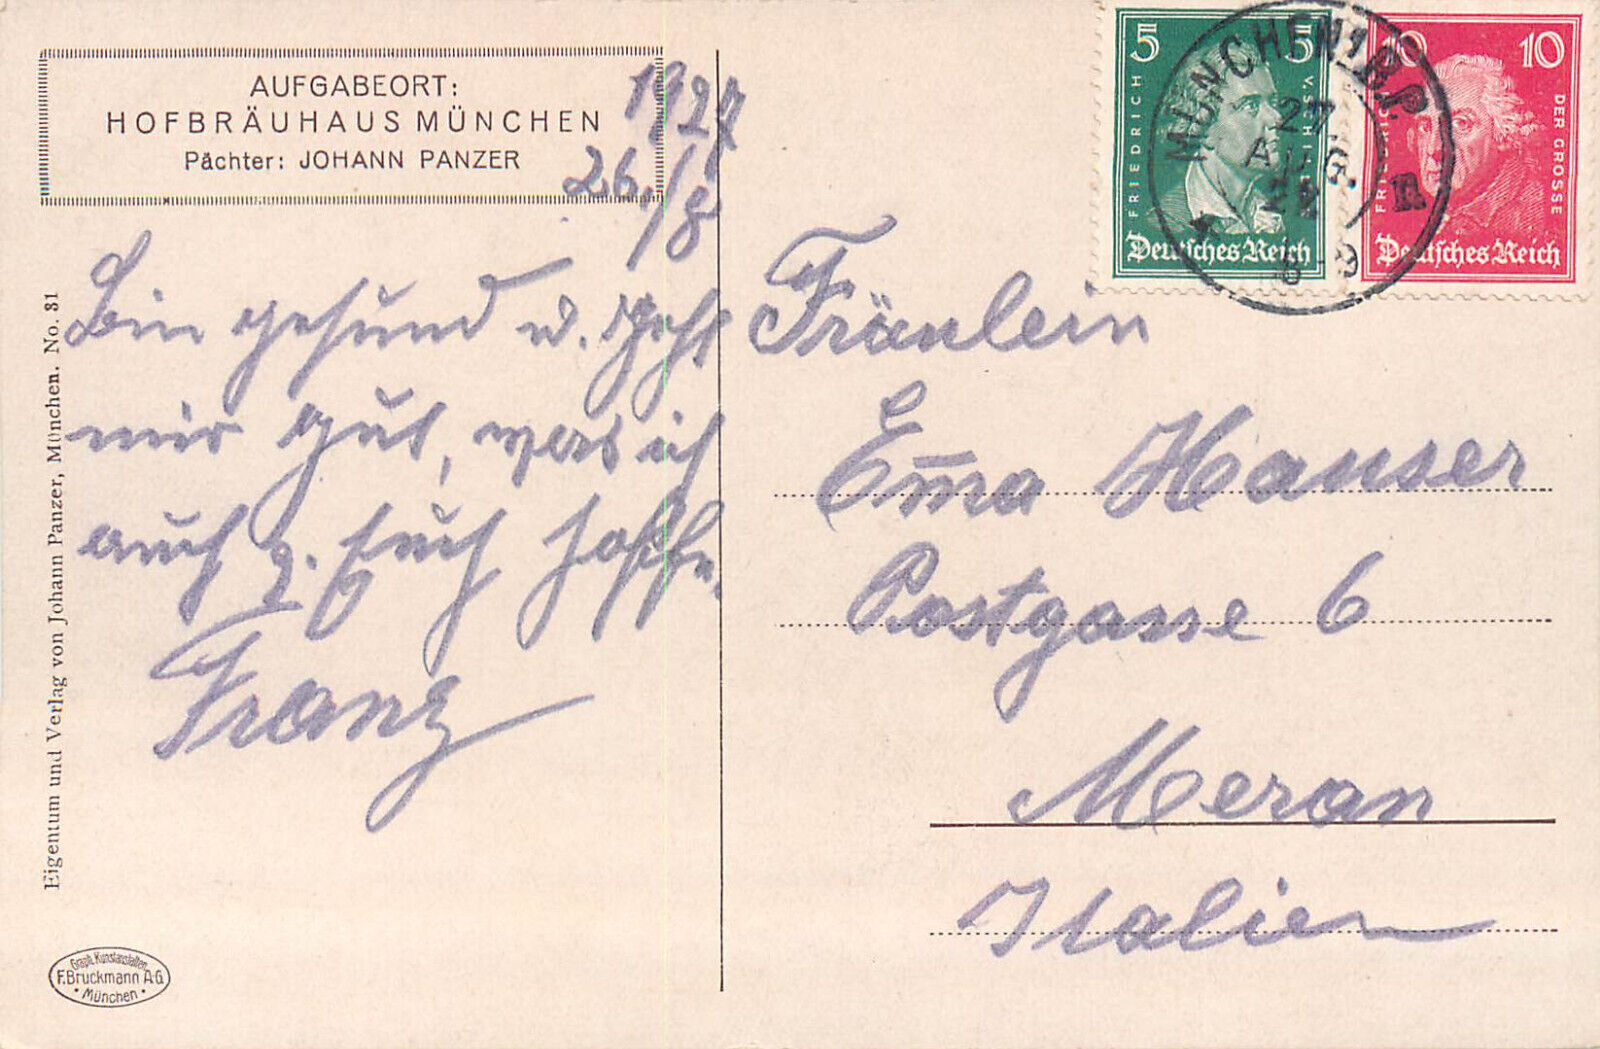 AUFGABEORT:
HOFBRÄUHAUS MÜNCHEN
Pächter: JOHANN PANZER
1927
26./8
Bin gesund u. geht
mir gut, was ich
auch v. Euch hoffe.
Franz
Eigentum und Verlag von Johann Panzer, München. No. 31
Graph. Kunstanstalten
F. Bruckmann A-G
• München •
5 5
FRIEDRICH V. SCHILLER
Deutsches Reich
10 10
FRIEDRICH DER GROSSE
Deutsches Reich
MÜNCHEN 1 B.P.
27.
AUG.
8-9
R
Fräulein
Em̅a Hauser
Postgasse 6
Meran
Italien